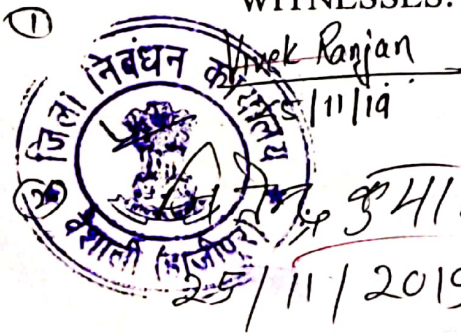 WITNESSES:
①
Vivek Ranjan
5/11/19
जिला निबंधन कार्यालय
वैशाली (हाजीपुर)
②
कुमार
25/11/2019